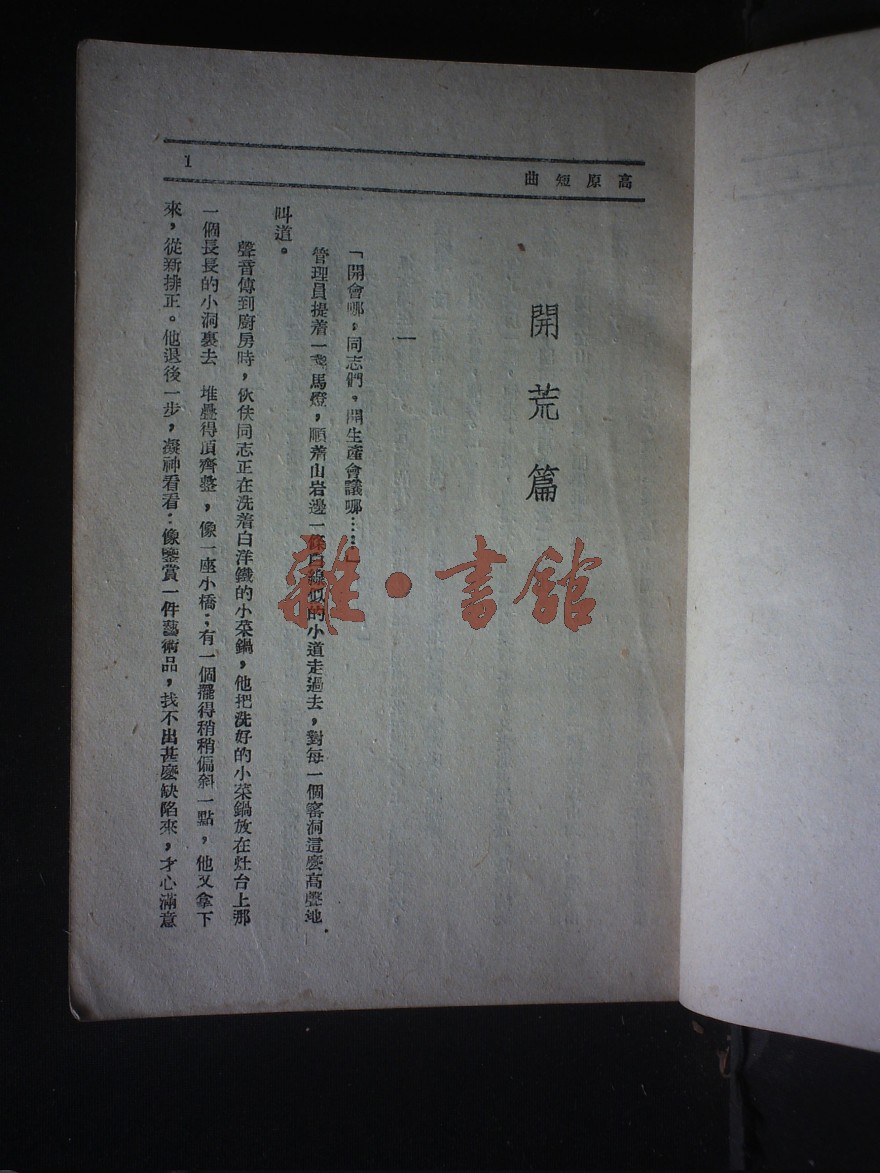 高原短曲
1
開荒篇
一
「開會哪，同志們。開生產會議哪……」
管理員提着一盞馬燈，順着山岩邊一條白線似的小道走過去，對每一個窰洞這麼高聲地
叫道。
聲音傳到廚房時，伙伕同志正在洗着白洋鐵的小菜鍋，他把洗好的小菜鍋放在灶台上那
一個長長的小洞裏去 堆疊得頂齊整，像一座小橋；有一個擺得稍稍偏斜一點，他又拿下
來，從新排正。他退後一步，凝神看看：像鑒賞一件藝術品，找不出甚麼缺陷來，才心滿意
雜·書館